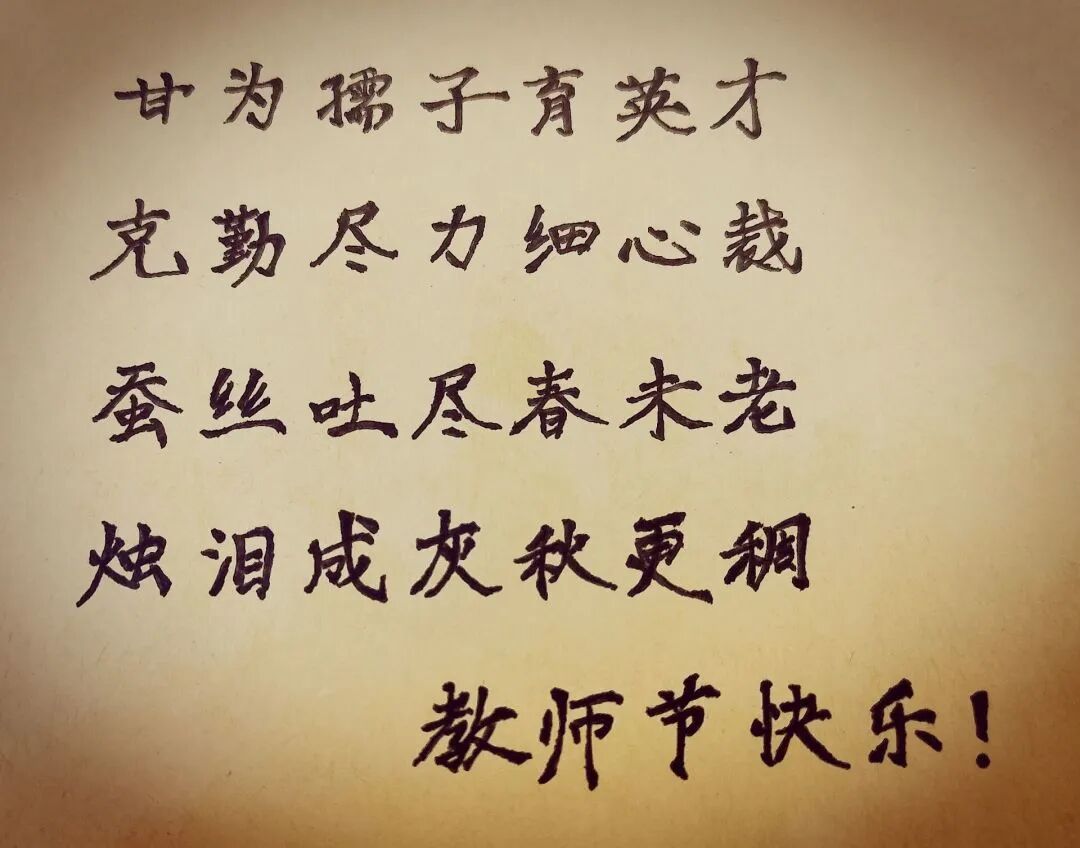 甘为孺子育英才
克勤尽力细心裁
蚕丝吐尽春未老
烛泪成灰秋更稠
教师节快乐!